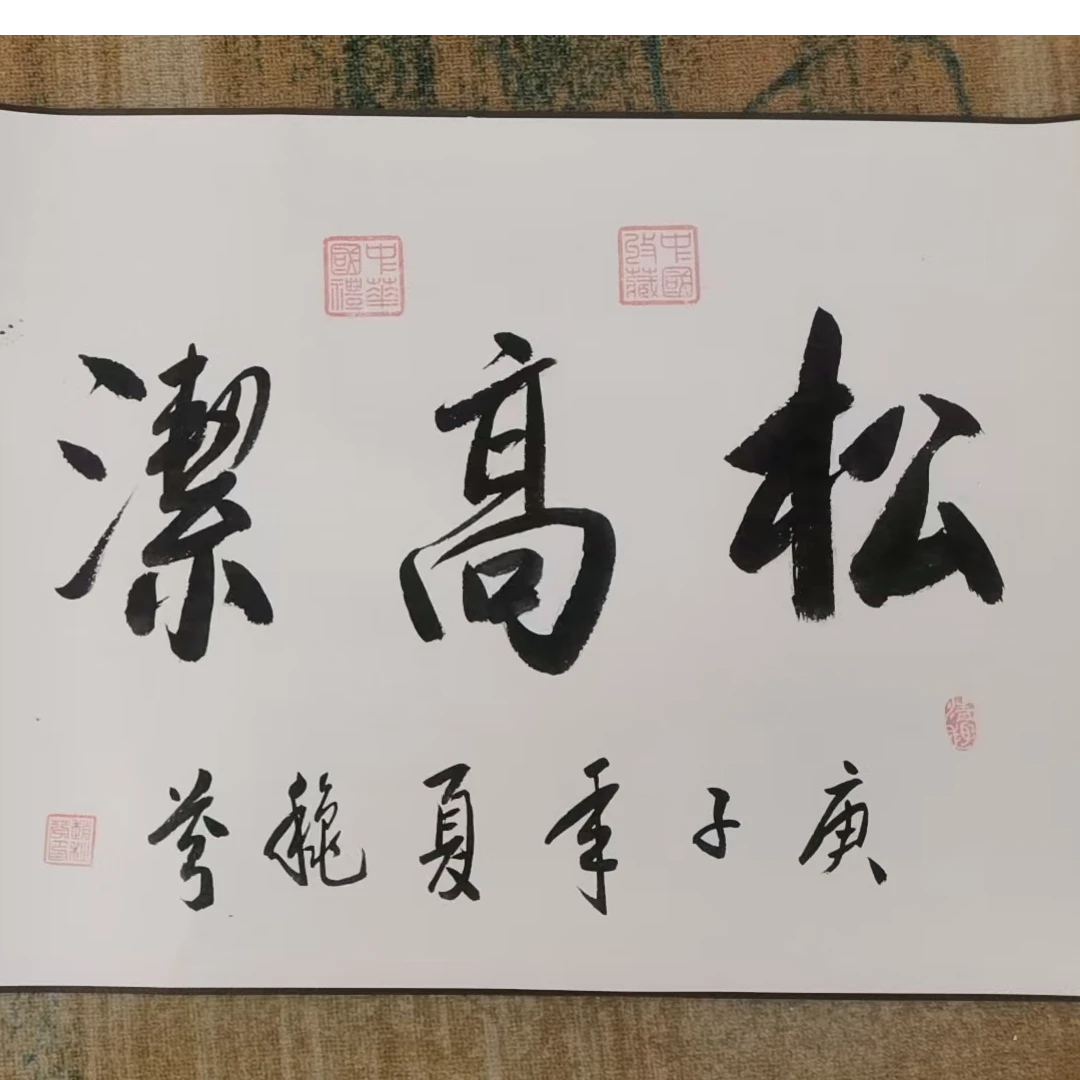 中國收藏
中華國禮
松高潔
庚子年夏穐